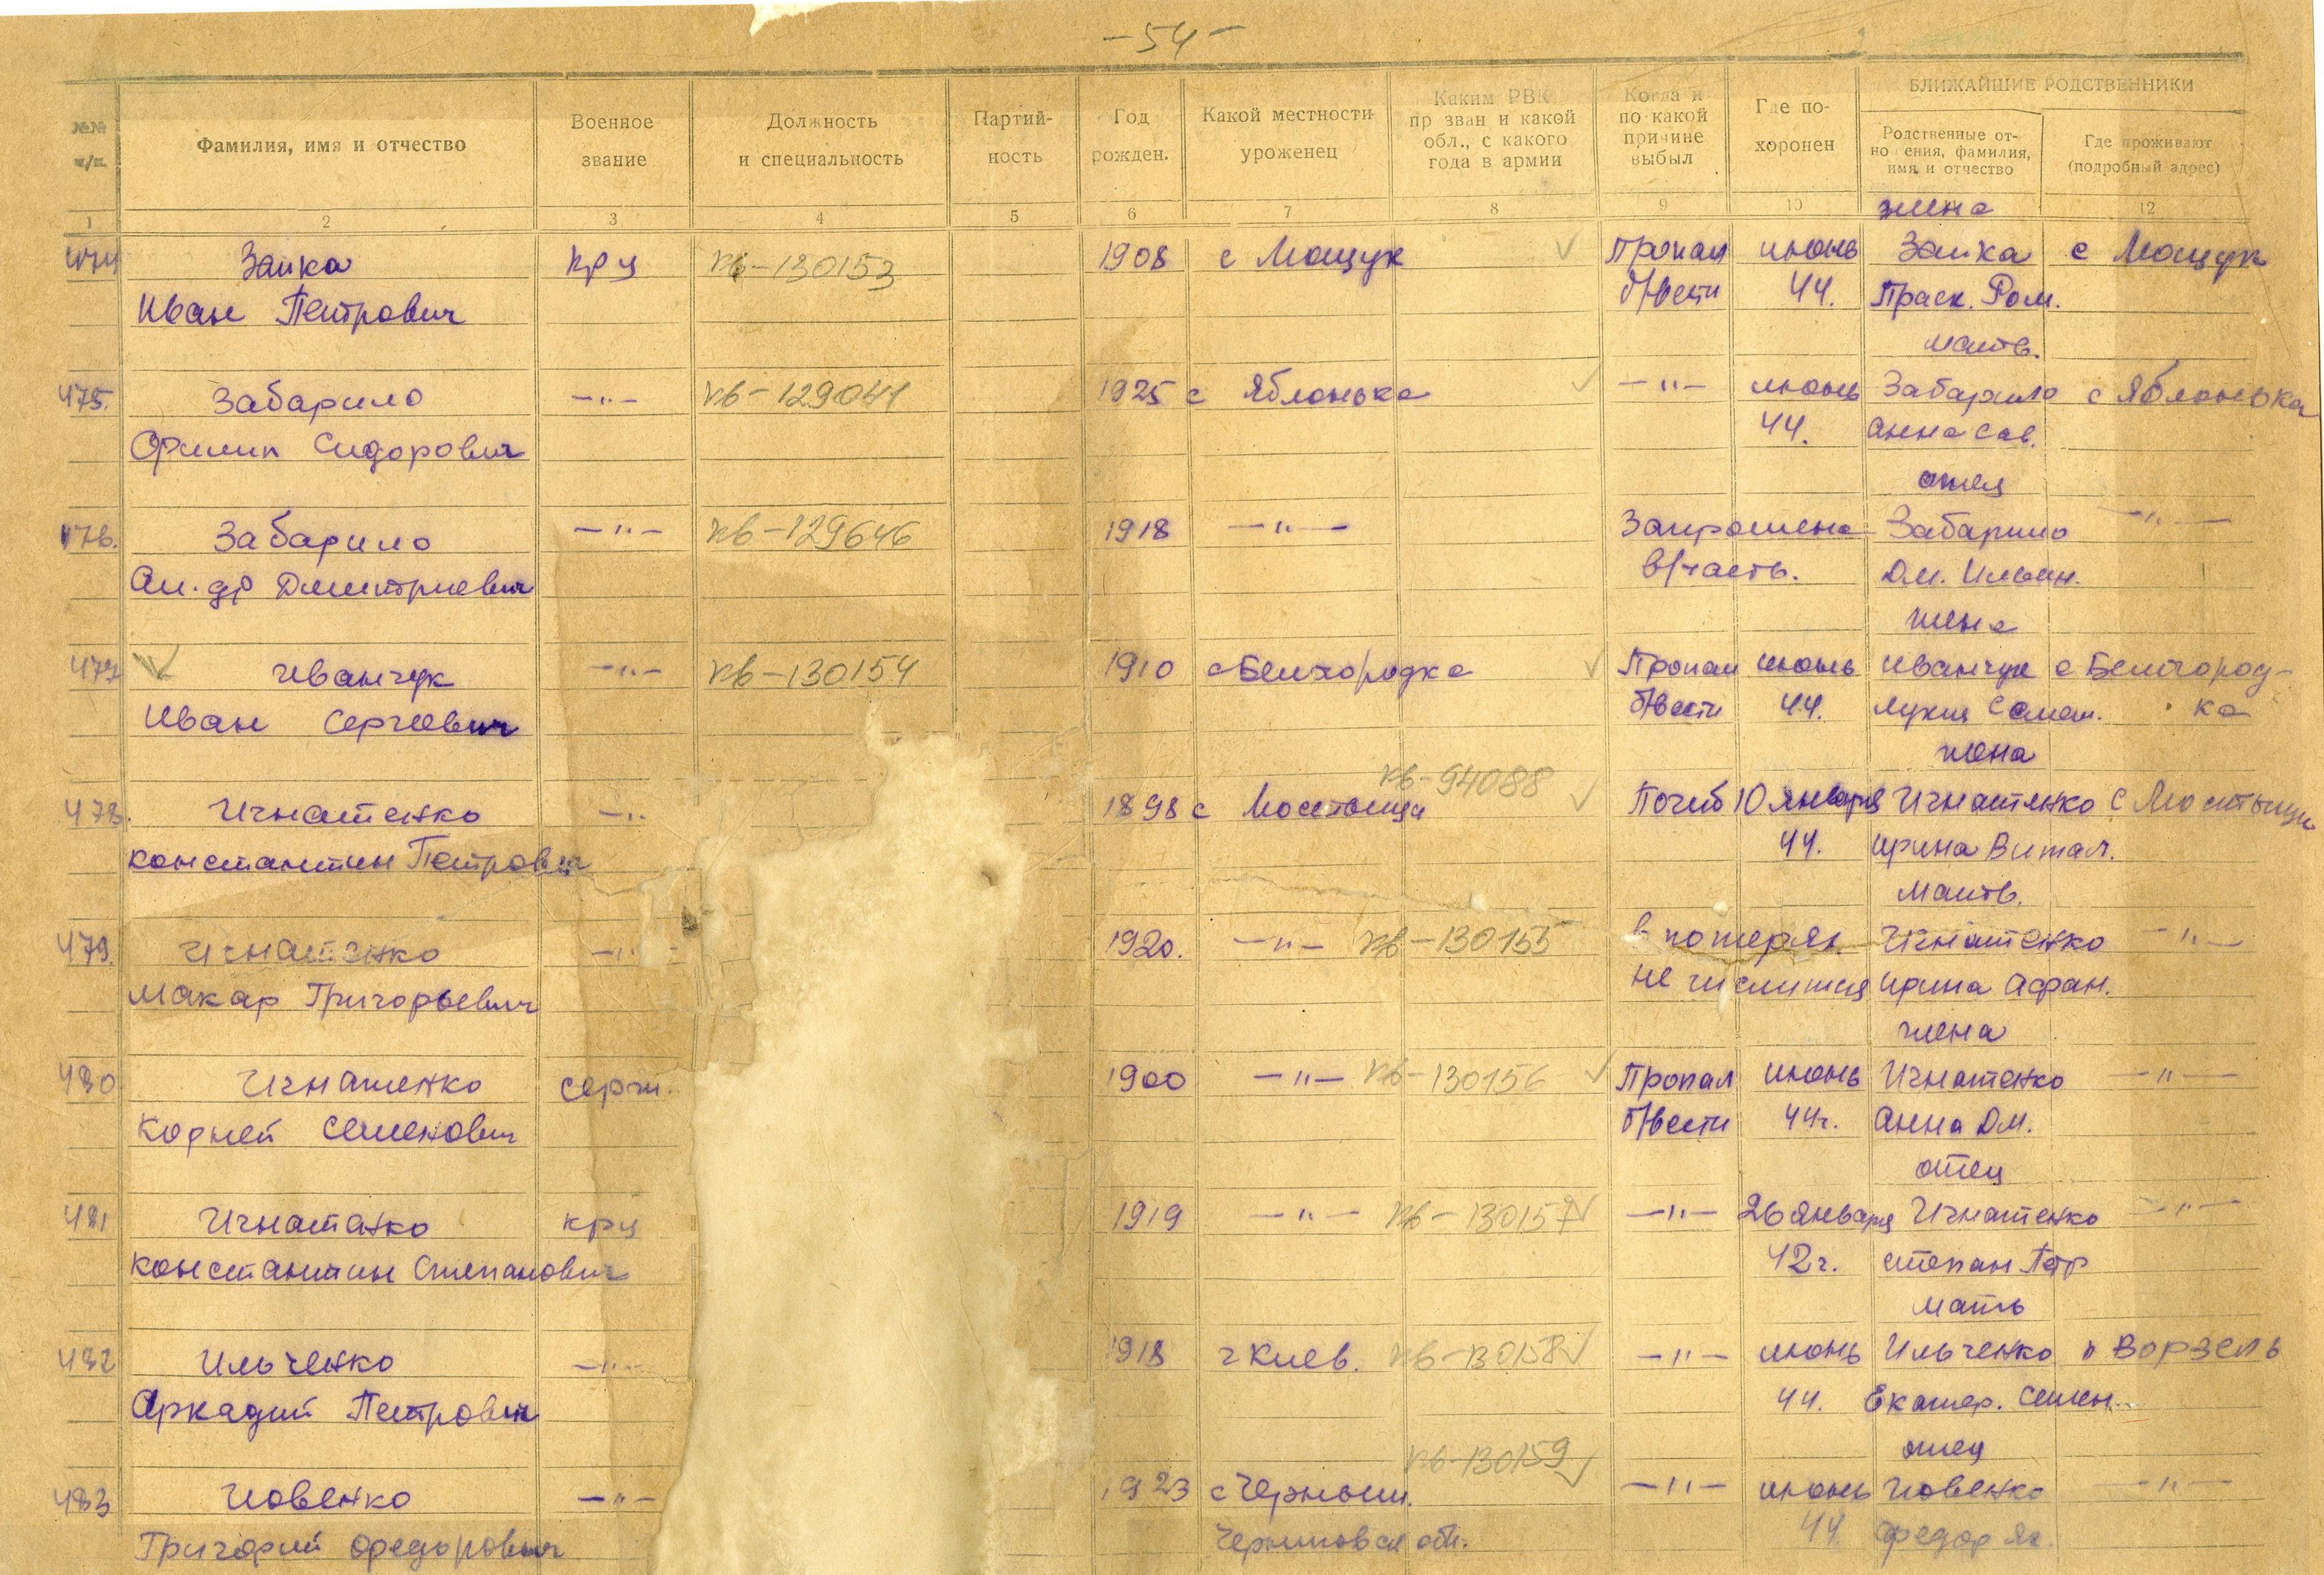 - 54 -
№№ п/п.
Фамилия, имя и отчество
Военное звание
Должность и специальность
Партий-ность
Год рожден.
Какой местности уроженец
Каким РВК пр зван и какой обл., с какого года в армии
Когда и по какой причине выбыл
Где по-хоронен
БЛИЖАЙШИЕ РОДСТВЕННИКИ
Родственные от-но ения, фамилия, имя и отчество
Где проживают (подробный адрес)
1 2 3 4 5 6 7 8 9 10 12
жена
474 Заика крц кв-130153 1908 с Мощук Пропал июнь Заика с Мощук
Иван Петрович б/вести 44. Праск. Ром.
мать.
475. Забарило -"- кв-129041 1925 с Яблонька -"- июнь Забарило с Яблонька
Филип Сидорович 44. Анна Сав.
отец
476. Забарило -"- кв-129646 1918 -"- Запрошена Забарило -"-
Ал-др Дмитриевич в/часть. Дм. Ильин.
жена
477 Иванчук -"- кв-130154 1910 с Белгородка Пропал июнь Иванчук с Белгород-
Иван Сергеевич б/вести 44. Лукия Самат. ка
жена
кв-94088
478. Игнатенко -"- 1898 с Мостыща Погиб 10 января Игнатенко с Мостыщи
Константин Петрович 44. Ирина Витал.
Мать.
479. Игнатенко -"- 1920. -"- кв-130155 в потерях Игнатенко -"-
Макар Григорьевич не числится Ирина Афан.
жена
480 Игнатенко серж. 1900 -"- кв-130156 Пропал июнь Игнатенко -"-
Корней Семенович б/вести 44г. Анна Дм.
отец
481 Игнатенко крц 1919 -"- кв-130157 -"- 26 января Игнатенко -"-
Константин Степанович 42г. Степан Петр
мать
482 Ильченко -"- 1918 г Киев. кв-130158 -"- июнь Ильченко п Ворзель
Аркадий Петрович 44. Екатер. Семен.
отец
кв-130159
483 Иовенко -"- 1923 с Черныш. -"- июнь Иовенко -"-
Григорий Федорович Черниговск обл. 44. Федор Як.